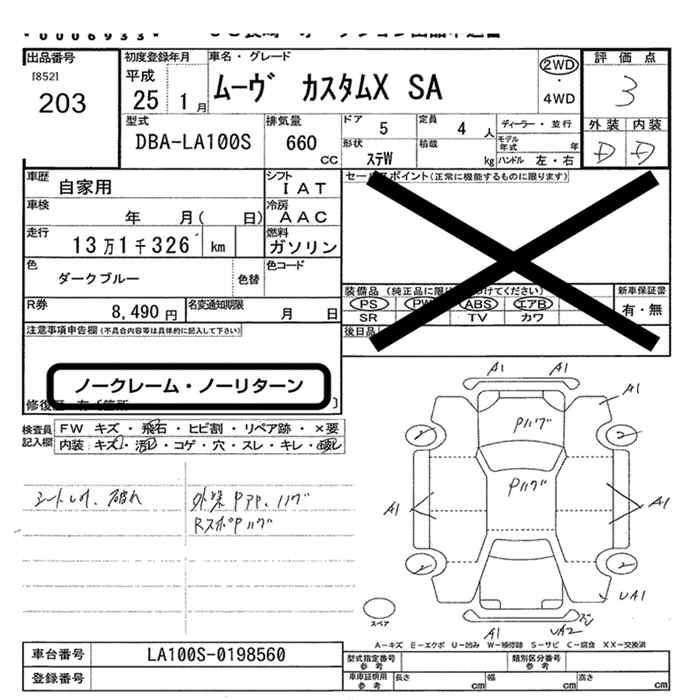 *0006933*
出品番号
[852]
203
初度登録年月
平成
25 1 月
車名・グレード
ムーヴ カスタムX SA
2WD
・
4WD
評価点
3
外装 内装
D D
型式
DBA-LA100S
排気量
660
cc
ドア 5
定員 4 人
形状 ステW
積載 kg
ディーラー・並行
モデル年式 年
ハンドル 左・右
車歴 自家用
シフト
IAT
車検 年 月( 日)
冷房
AAC
走行 13万1千326 km
燃料
ガソリン
色 ダークブルー
色替
色コード
R券 8,490円
名変通知期限 月 日
セールスポイント(正常に機能するものに限ります)
装備品(純正品に限り つけてください)
PS PW ABS エアB
SR TV カワ
新車保証書
有・無
後日品
注意事項申告欄(不具合内容等は具体的に記入して下さい)
ノークレーム・ノーリターン
検査員記入欄
FW キズ・飛石・ヒビ割・リペア跡・×要
内装 キズ・汚レ・コゲ・穴・スレ・キレ・破レ
破れ
A1 A1
A1
Pハゲ
2 2
Pハゲ
A1 A1
2 2
UA1
A1 UA2
スペア
A－キズ E－エクボ U－凹み W－補修跡 S－サビ C－腐食 XX－交換済
車台番号 LA100S-0198560
登録番号
型式指定番号
参考
類別区分番号
参考
車庫証明用
参考
長さ cm 幅 cm 高さ cm